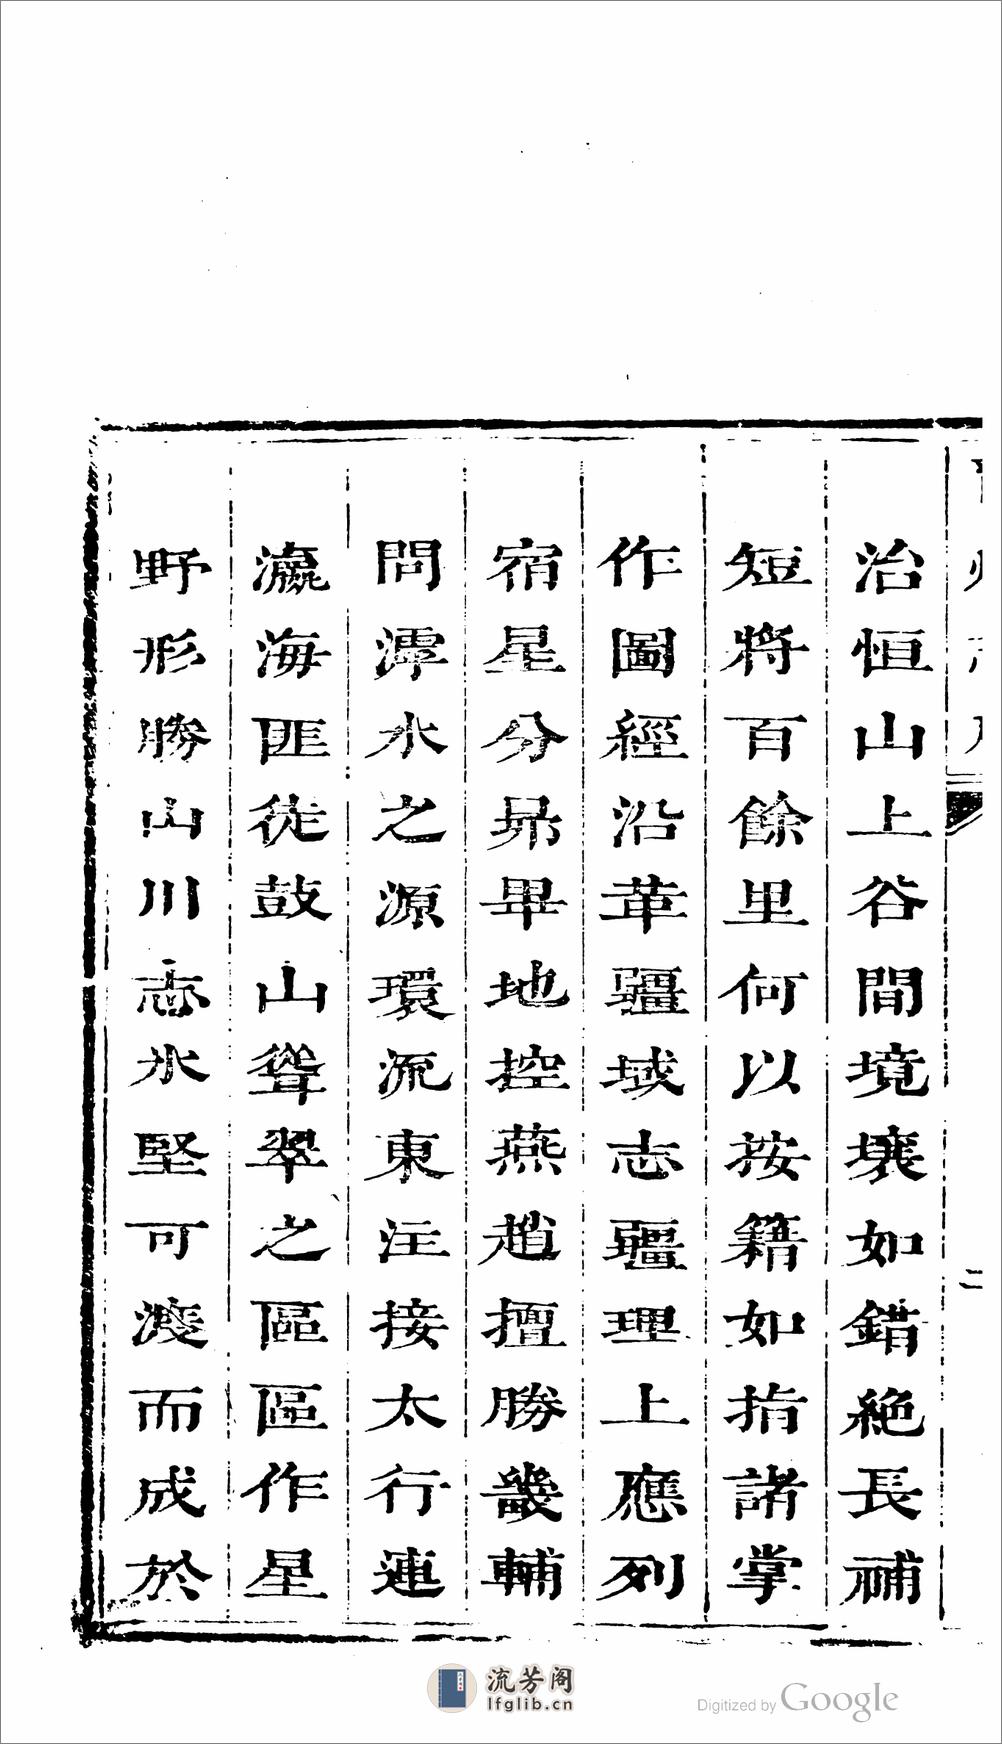 治恒山上谷間境壤如錯絕長補
短將百餘里何以按籍如指諸掌
作圖經沿革疆域志疆理上應列
宿星分昴畢地控燕趙擅勝畿輔
問潭水之源環流東注接太行連
瀛海匪從鼓山聳翠之區區作星
野形勝山川志水堅可渡而成於
二
流芳阁
lfglib.cn
Digitized by Google